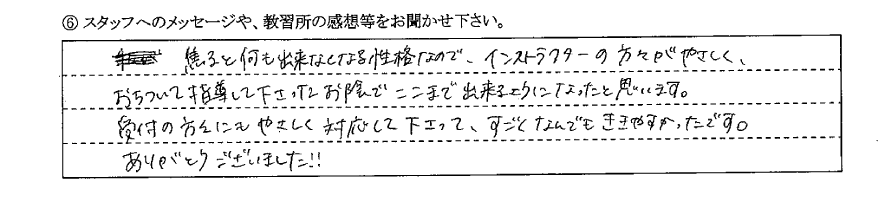 ⑥ スタッフへのメッセージや、教習所の感想等をお聞かせ下さい。
焦ると何も出来なくなる性格なので、インストラクターの方々がやさしく、
おちついて指導して下さったお陰でここまで出来るようになったと思います。
受付の方々にもやさしく対応して下さって、すごくなんでもききやすかったです。
ありがとうございました!!